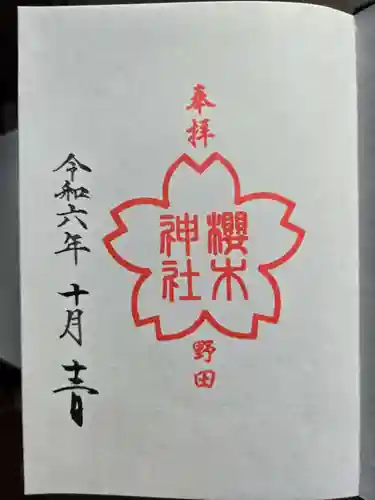 奉拝
櫻木
神社
野田
令和六年 十月 十二日